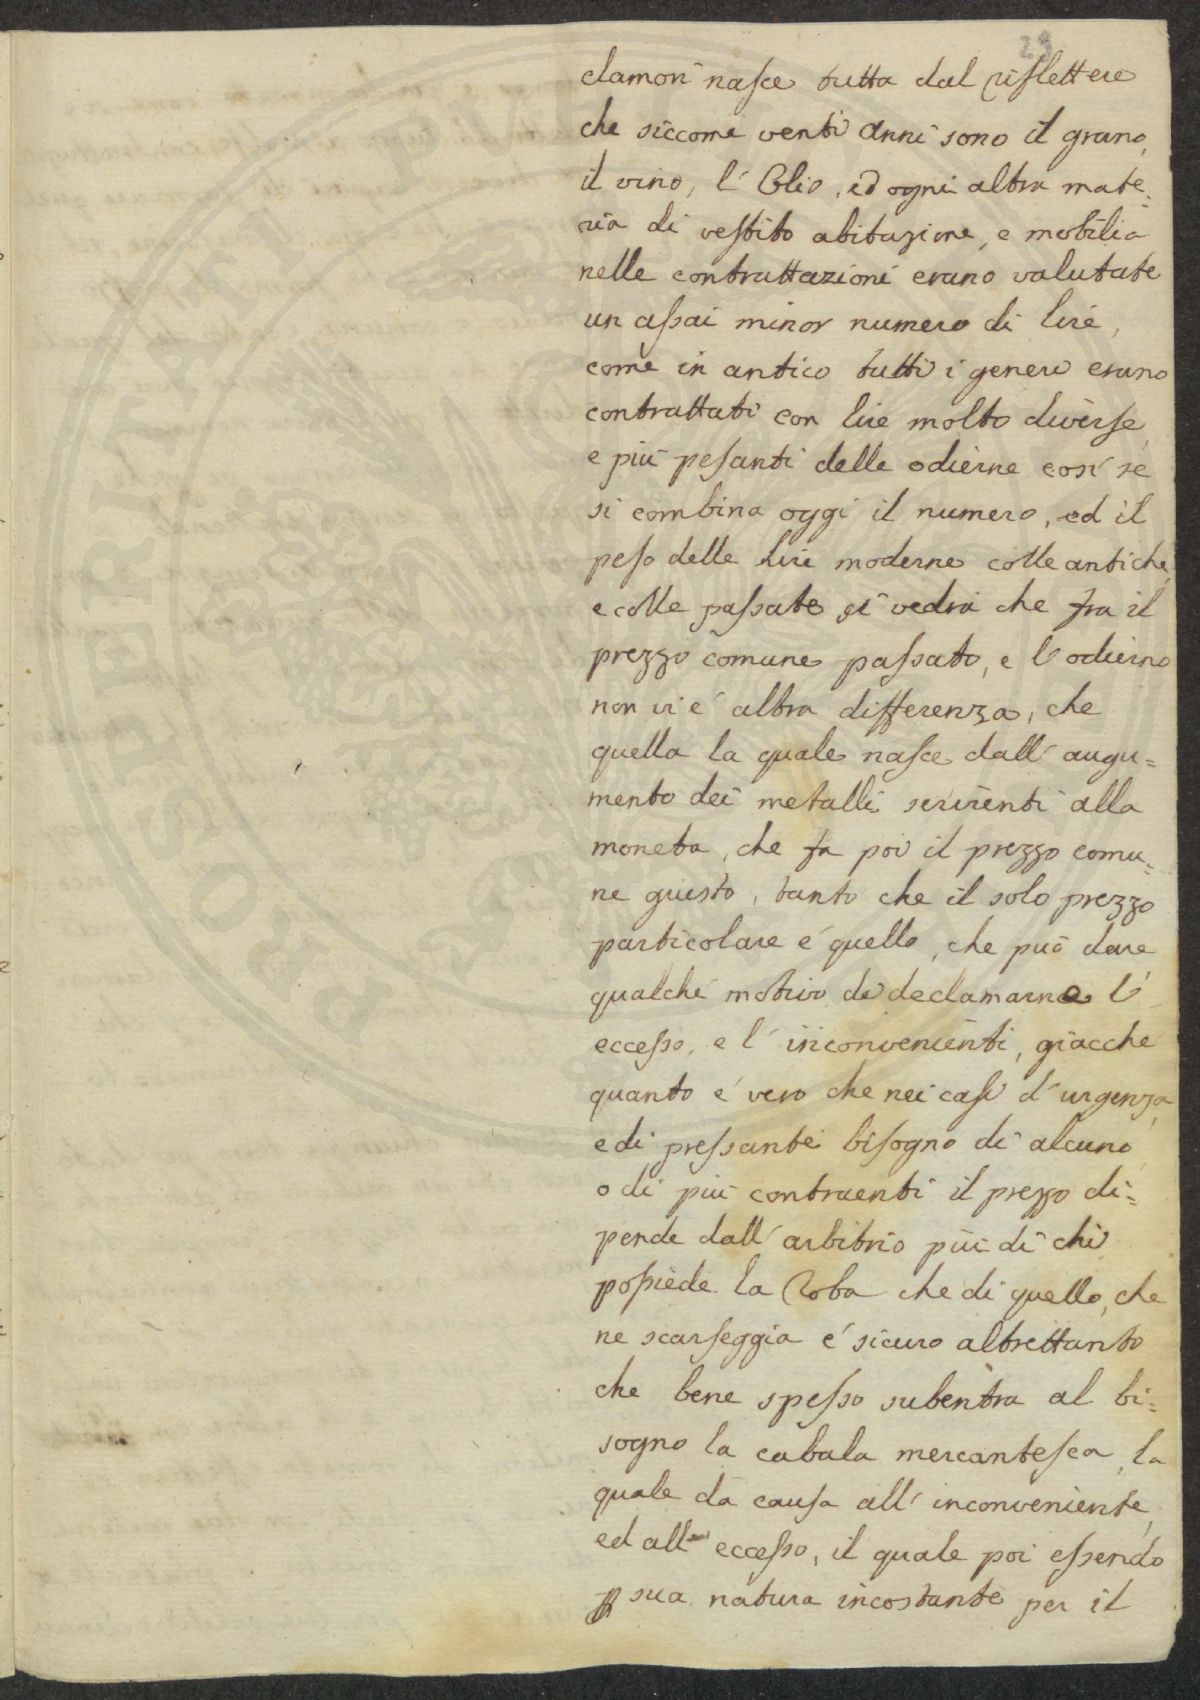 23
clamori nasce tutta dal riflettere
che siccome venti anni sono il grano,
il vino, l'Olio, ed ogni altra mate=
ria di vestito abitazione, e mobilia
nelle contrattazioni erano valutate
un assai minor numero di lire,
come in antico tutti i generi erano
contrattati con lire molto diverse,
e più pesanti delle odierne così se
si combina oggi il numero, ed il
peso delle lire moderne colle antiche,
e colle passate si vedrà che fra il
prezzo comune passato, e l'odierno
non vi è altra differenza, che
quella la quale nasce dall'augu=
mento dei metalli servienti alla
moneta, che fa poi il prezzo comu=
ne giusto, tanto che il solo prezzo
particolare è quello, che può dare
qualche motivo di declamarne l'
eccesso, e l'inconvenienti, giacchè
quanto è vero che nei casi d'urgenza,
e di pressante bisogno di alcuno,
o di più contraenti il prezzo di=
pende dall'arbitrio più di chi
possiede la roba che di quello, che
ne scarseggia è sicuro altrettanto
che bene spesso subentra al bi=
sogno la cabala mercantesca, la
quale dà causa all'inconveniente,
ed all'eccesso, il quale poi essendo
p sua natura incostante per il
PROPRIETÀ PUBBLICA